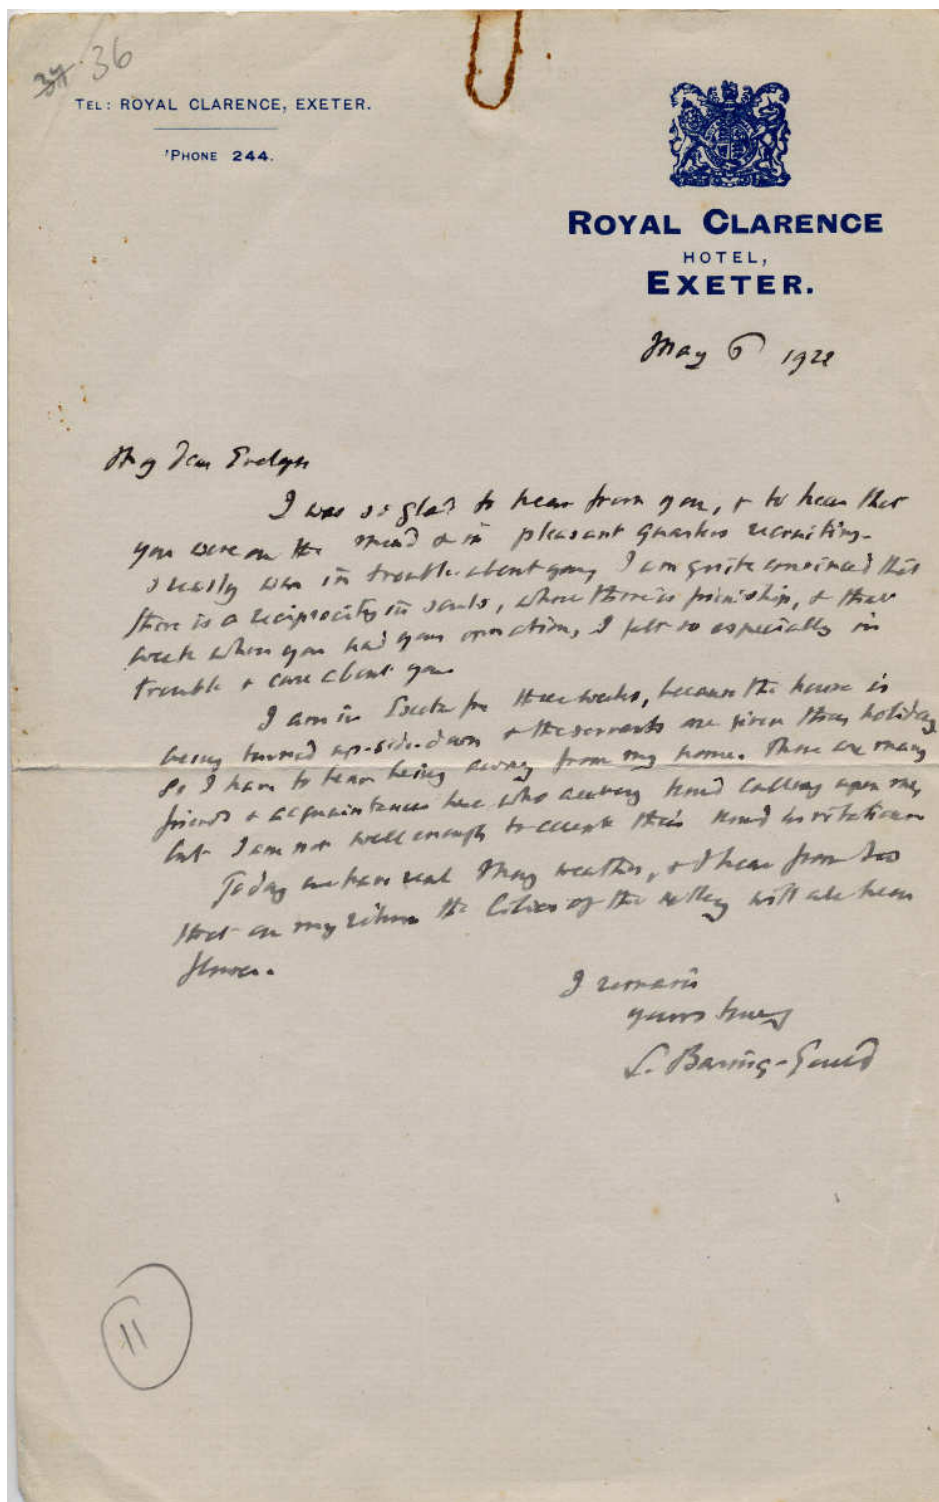 34 36
TEL: ROYAL CLARENCE, EXETER.
'PHONE 244.
ROYAL CLARENCE
HOTEL,
EXETER.
May 6 1922
My dear Evelyn
I was so glad to hear from you, & to hear that
you were on the mend & in pleasant quarters recruiting.
I really was in trouble about you, I am quite convinced that
there is a reciprocity in souls, where there is friendship, & that
week when you had your operation, I felt so especially in
trouble & care about you
I am in Exeter for three weeks, because the house is
being turned up-side-down & the servants are given their holiday
So I have to bear being away from my home. There are many
friends & acquaintances here who are very kind calling upon me,
but I am not well enough to accept their kind invitations
Today we have real May weather, & I hear from
that on my return the Lilies of the valley will all be in
flower.
I remain
yours truly
S. Baring-Gould
11